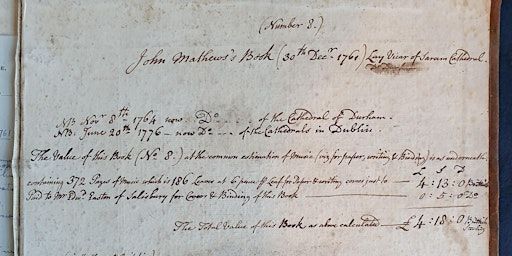 (Number 8.)
John Mathews's Book (30th Decr. 1761) Lay Vicar of Sarum Cathedral.
NB Novr. 8th 1764 now Do. - - - of the Cathedral of Durham.
NB. June 20th 1776 - now Do - - - of the Cathedrals in Dublin.
The Value of this Book (No 8.) at the common estimation of Music (viz for paper, writing & Binding) is as underneath.
£ S D
containing 372 Pages of Music which is 186 Leaves at 6 pence pr Leaf for Paper & writing comes just to 4 : 13 : 0 British
Paid to Mr Edmd. Easton of Salesbury for Covers & Binding of this Book 0 : 5 : 0 Do
The Total Value of this Book as above calculated £ 4 : 18 : 0 British
Sterling